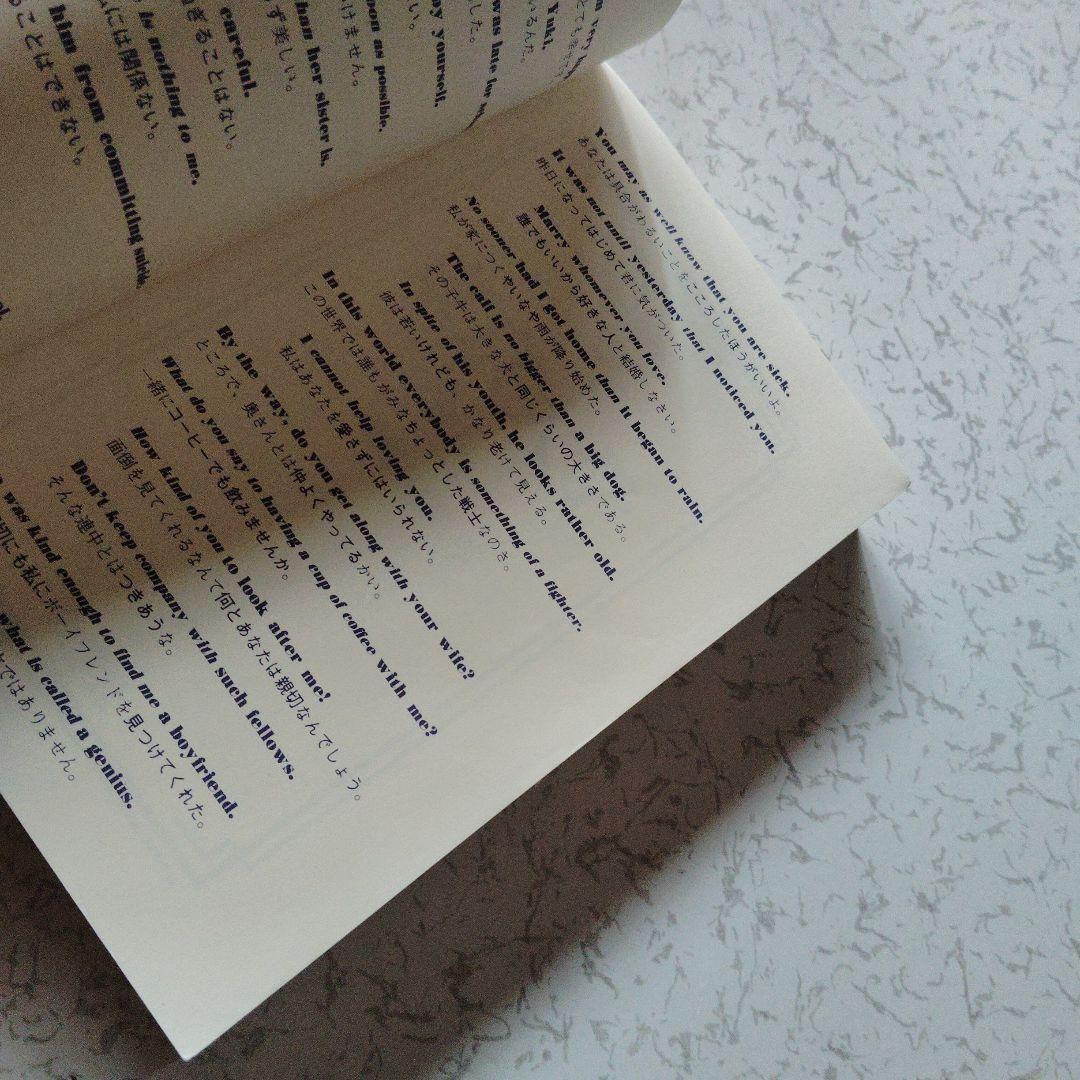 Yuki.
いるんだ。
was late for
した。
by yourself.
い。
as possible.
けません。
her sister is.
ず美しい。
careful.
ぎることはない。
is nothing to me.
には関係ない。
him from committing
ことはできない。
You may as well know that you are sick.
あなたは具合がわるいことをこころしたほうがいいよ。
It was not until yesterday that I noticed you.
昨日になってはじめて君に気がついた。
Marry whomever you love.
誰でもいいから好きな人と結婚しなさい。
No sooner had I got home than it began to rain.
私が家につくやいなや雨が降り始めた。
The calf is no bigger than a big dog.
その子牛は大きな犬と同じくらいの大きさである。
In spite of his youth, he looks rather old.
彼は若いけれども、かなり老けて見える。
In this world everybody is something of a fighter.
この世界では誰もがみなちょっとした戦士なのさ。
I cannot help loving you.
私はあなたを愛さずにはいられない。
By the way, do you get along with your wife?
ところで、奥さんとは仲よくやってるかい。
What do you say to having a cup of coffee with me?
一緒にコーヒーでも飲みませんか。
How kind of you to look after me!
面倒を見てくれるなんて何とあなたは親切なんでしょう。
Don't keep company with such fellows.
そんな連中とはつきあうな。
was kind enough to find me a boyfriend.
切にも私にボーイフレンドを見つけてくれた。
what is called a genius.
ではありません。